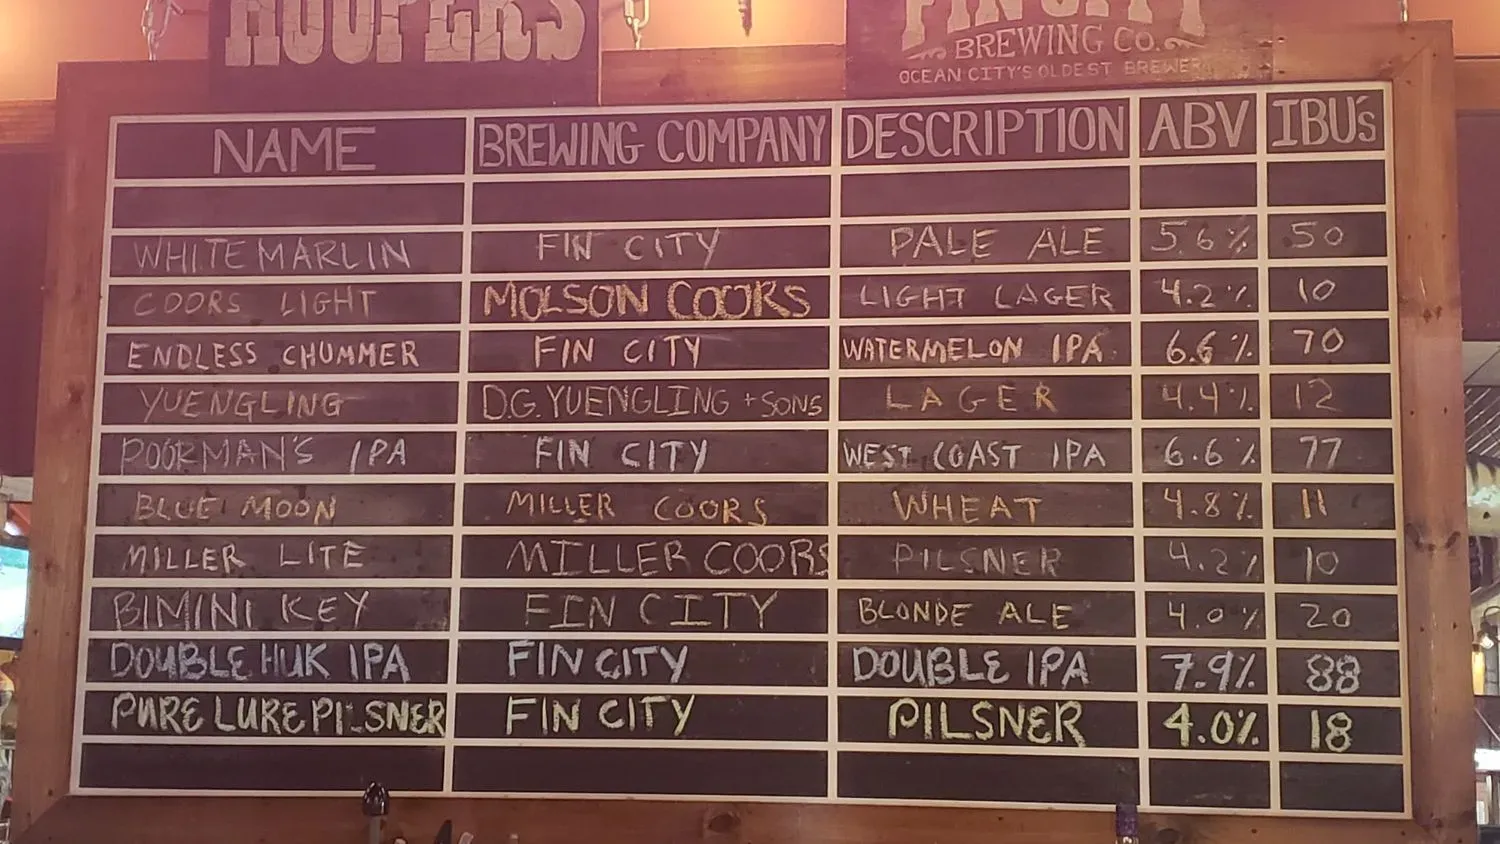 HOOPERS
FIN CITY
BREWING CO.
OCEAN CITY'S OLDEST BREWERY
NAME BREWING COMPANY DESCRIPTION ABV IBU's
WHITE MARLIN FIN CITY PALE ALE 5.6% 50
COORS LIGHT MOLSON COORS LIGHT LAGER 4.2% 10
ENDLESS CHUMMER FIN CITY WATERMELON IPA 6.6% 70
YUENGLING D.G. YUENGLING + SONS LAGER 4.4% 12
POORMAN'S IPA FIN CITY WEST COAST IPA 6.6% 77
BLUE MOON MILLER COORS WHEAT 4.8% 11
MILLER LITE MILLER COORS PILSNER 4.2% 10
BIMINI KEY FIN CITY BLONDE ALE 4.0% 20
DOUBLE HUK IPA FIN CITY DOUBLE IPA 7.9% 88
PURE LURE PILSNER FIN CITY PILSNER 4.0% 18